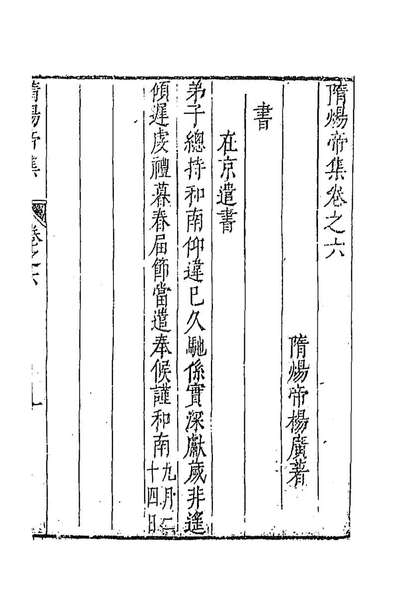 隋煬帝集卷之六
隋煬帝楊廣著
書
在京遣書
弟子總持和南仰違巳久馳係實深獻歲非遙
傾遲虔禮暮春届節當遣奉候謹和南九月二
十四日
隋煬帝集
卷之六